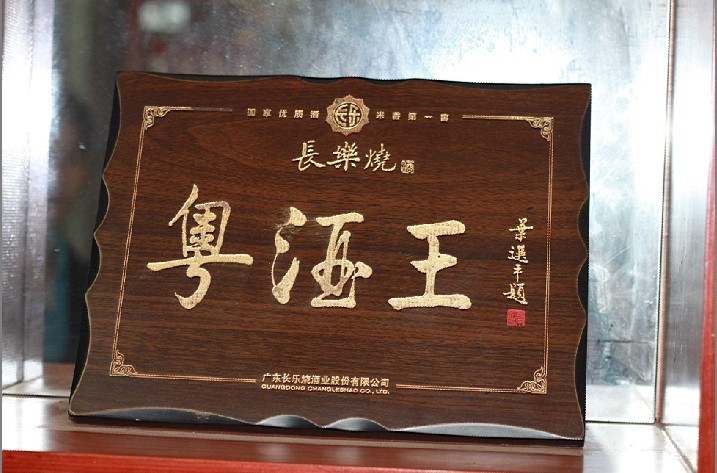 国家优质酒 长乐 米香第一窖
長樂燒
粤酒王
葉選平題
广东长乐烧酒业股份有限公司
GUANGDONG CHANGLESHAO CO., LTD.